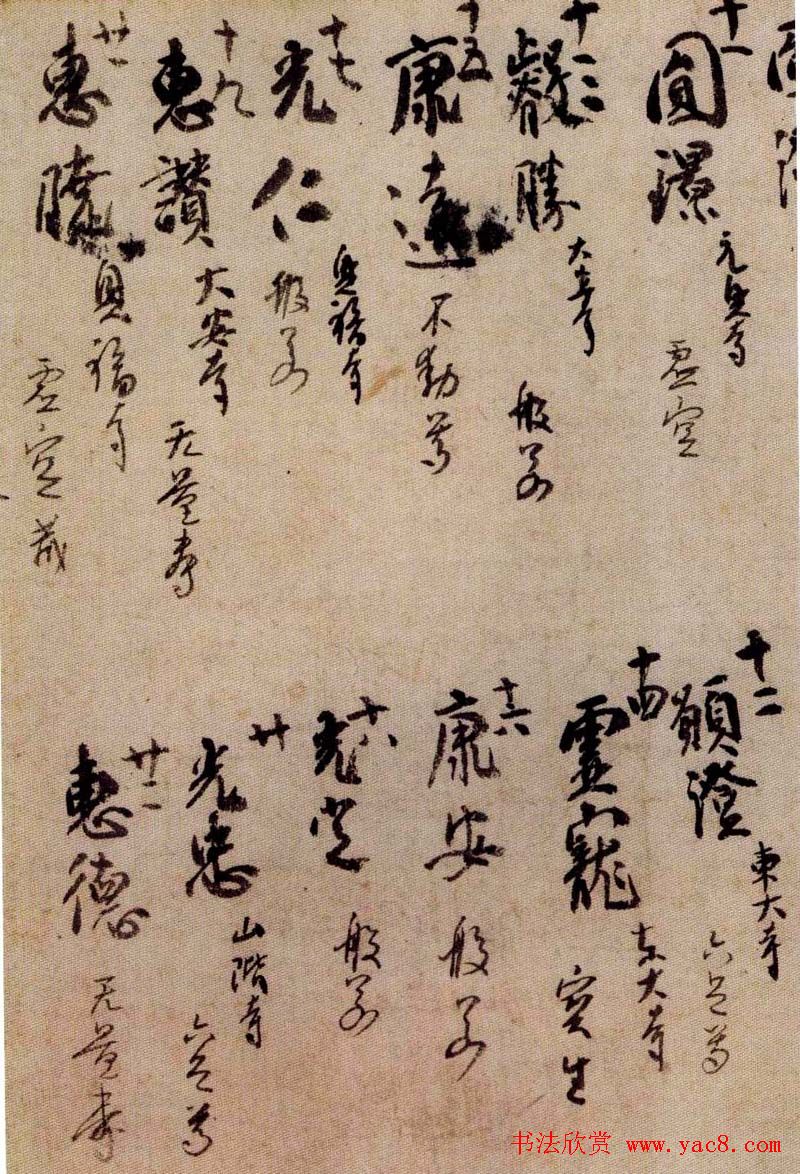 十一 圓璟 元興寺 虚空
十三 叡勝 大安寺 般若
十五 康遠 不動尊
十七 光仁 興福寺 般若
十九 惠讃 大安寺 无量壽
廿一 惠曉 興福寺 虚空藏
十二 願澄 東大寺 六足尊
十四 靈龍 東大寺 寶生
十六 康安 般若
十八 光定 般若
廿 光忠 山階寺 六足尊
廿二 惠德 无量壽
书法欣赏 www.yac8.com